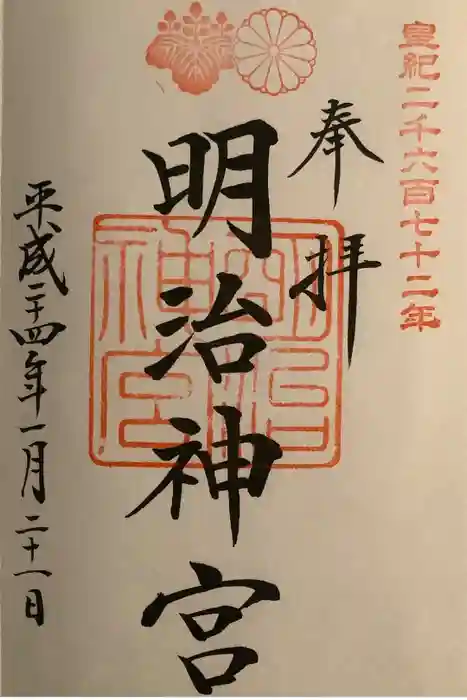 皇紀二千六百七十二年
奉拝
明治神宮
明治神宮
平成二十四年一月二十一日